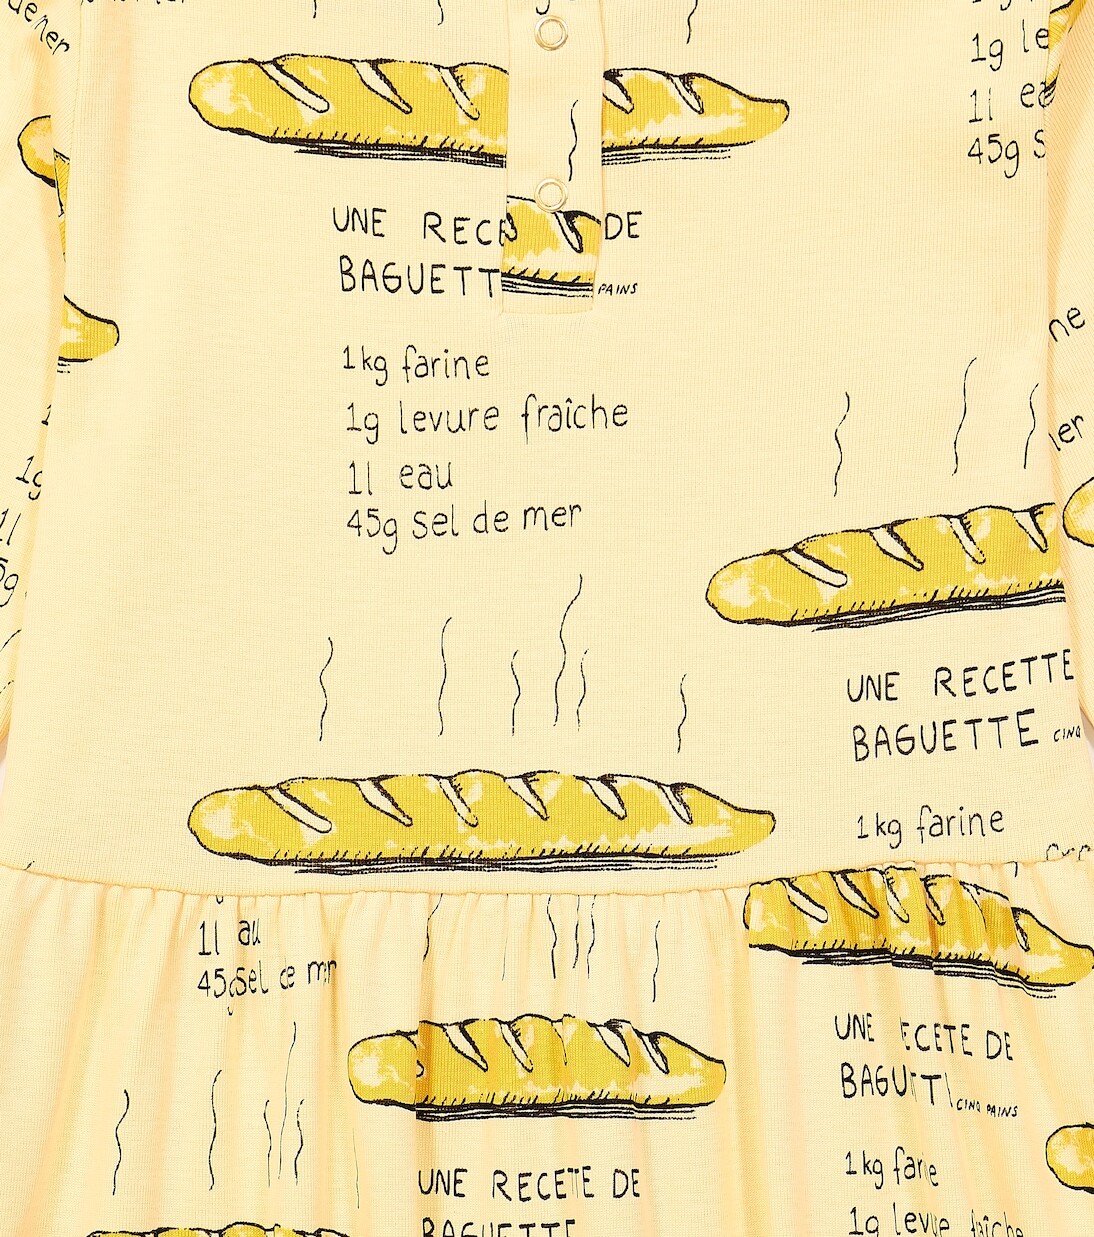 de mer
1g le
1l ea
45g s
UNE REC DE
BAGUETT PAINS
1kg farine
1g levure fraîche
1l eau
45g sel de mer
UNE RECETTE
BAGUETTE CINQ
1kg farine
1l au
45g sel de mer
UNE ECETE DE
BAGUTT CINQ PAINS
1kg farie
1g levue fraîche
UNE RECETE DE
BAGUETTE